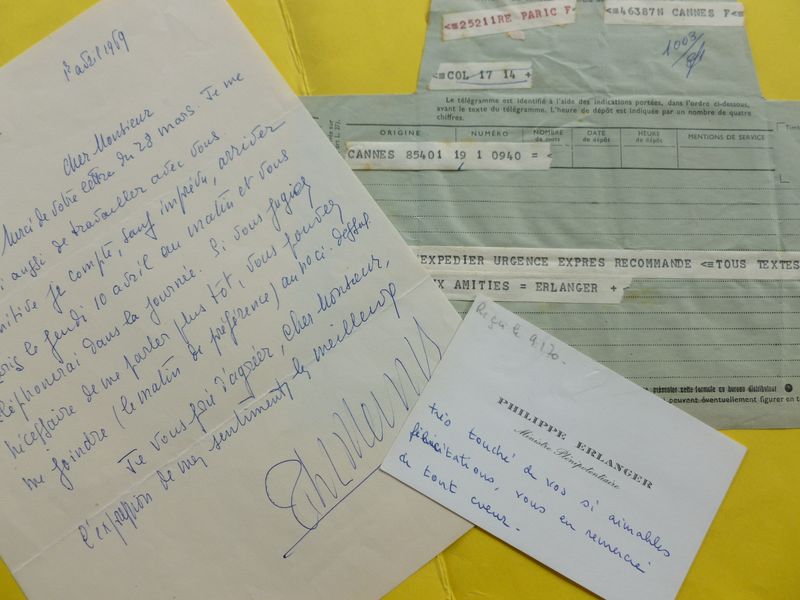 1er avril 1969
Cher Monsieur
Merci de votre lettre du 28 mars. Je me
aussi de travailler avec vous.
je compte, sauf imprévu, arriver
le jeudi 10 avril au matin et vous
téléphonerai dans la journée. Si vous jugiez
nécessaire de me parler plus tôt, vous pouvez
me joindre (le matin de préférence) au
Je vous prie d'agréer, cher Monsieur,
l'expression de mes sentiments les meilleurs
<≡25211RE PARIC F
<≡46387N CANNES F≡
1003/
<≡COL 17 14 +
Le télégramme est identifié à l'aide des indications portées, dans l'ordre ci-dessous,
avant le texte du télégramme. L'heure de dépôt est indiquée par un nombre de quatre
chiffres.
ORIGINE NUMÉRO NOMBRE de mots DATE de dépôt HEURE de dépôt MENTIONS DE SERVICE
CANNES 85401 19 1 0940 = <≡
EXPEDIER URGENCE EXPRES RECOMMANDE <≡TOUS TEXTES
AMITIES = ERLANGER +
présenter cette formule en bureau distributeur
peuvent éventuellement figurer en
Reçu le
PHILIPPE ERLANGER
Ministre Plénipotentiaire
très touché de vos si aimables
félicitations, vous en remercie
de tout coeur.